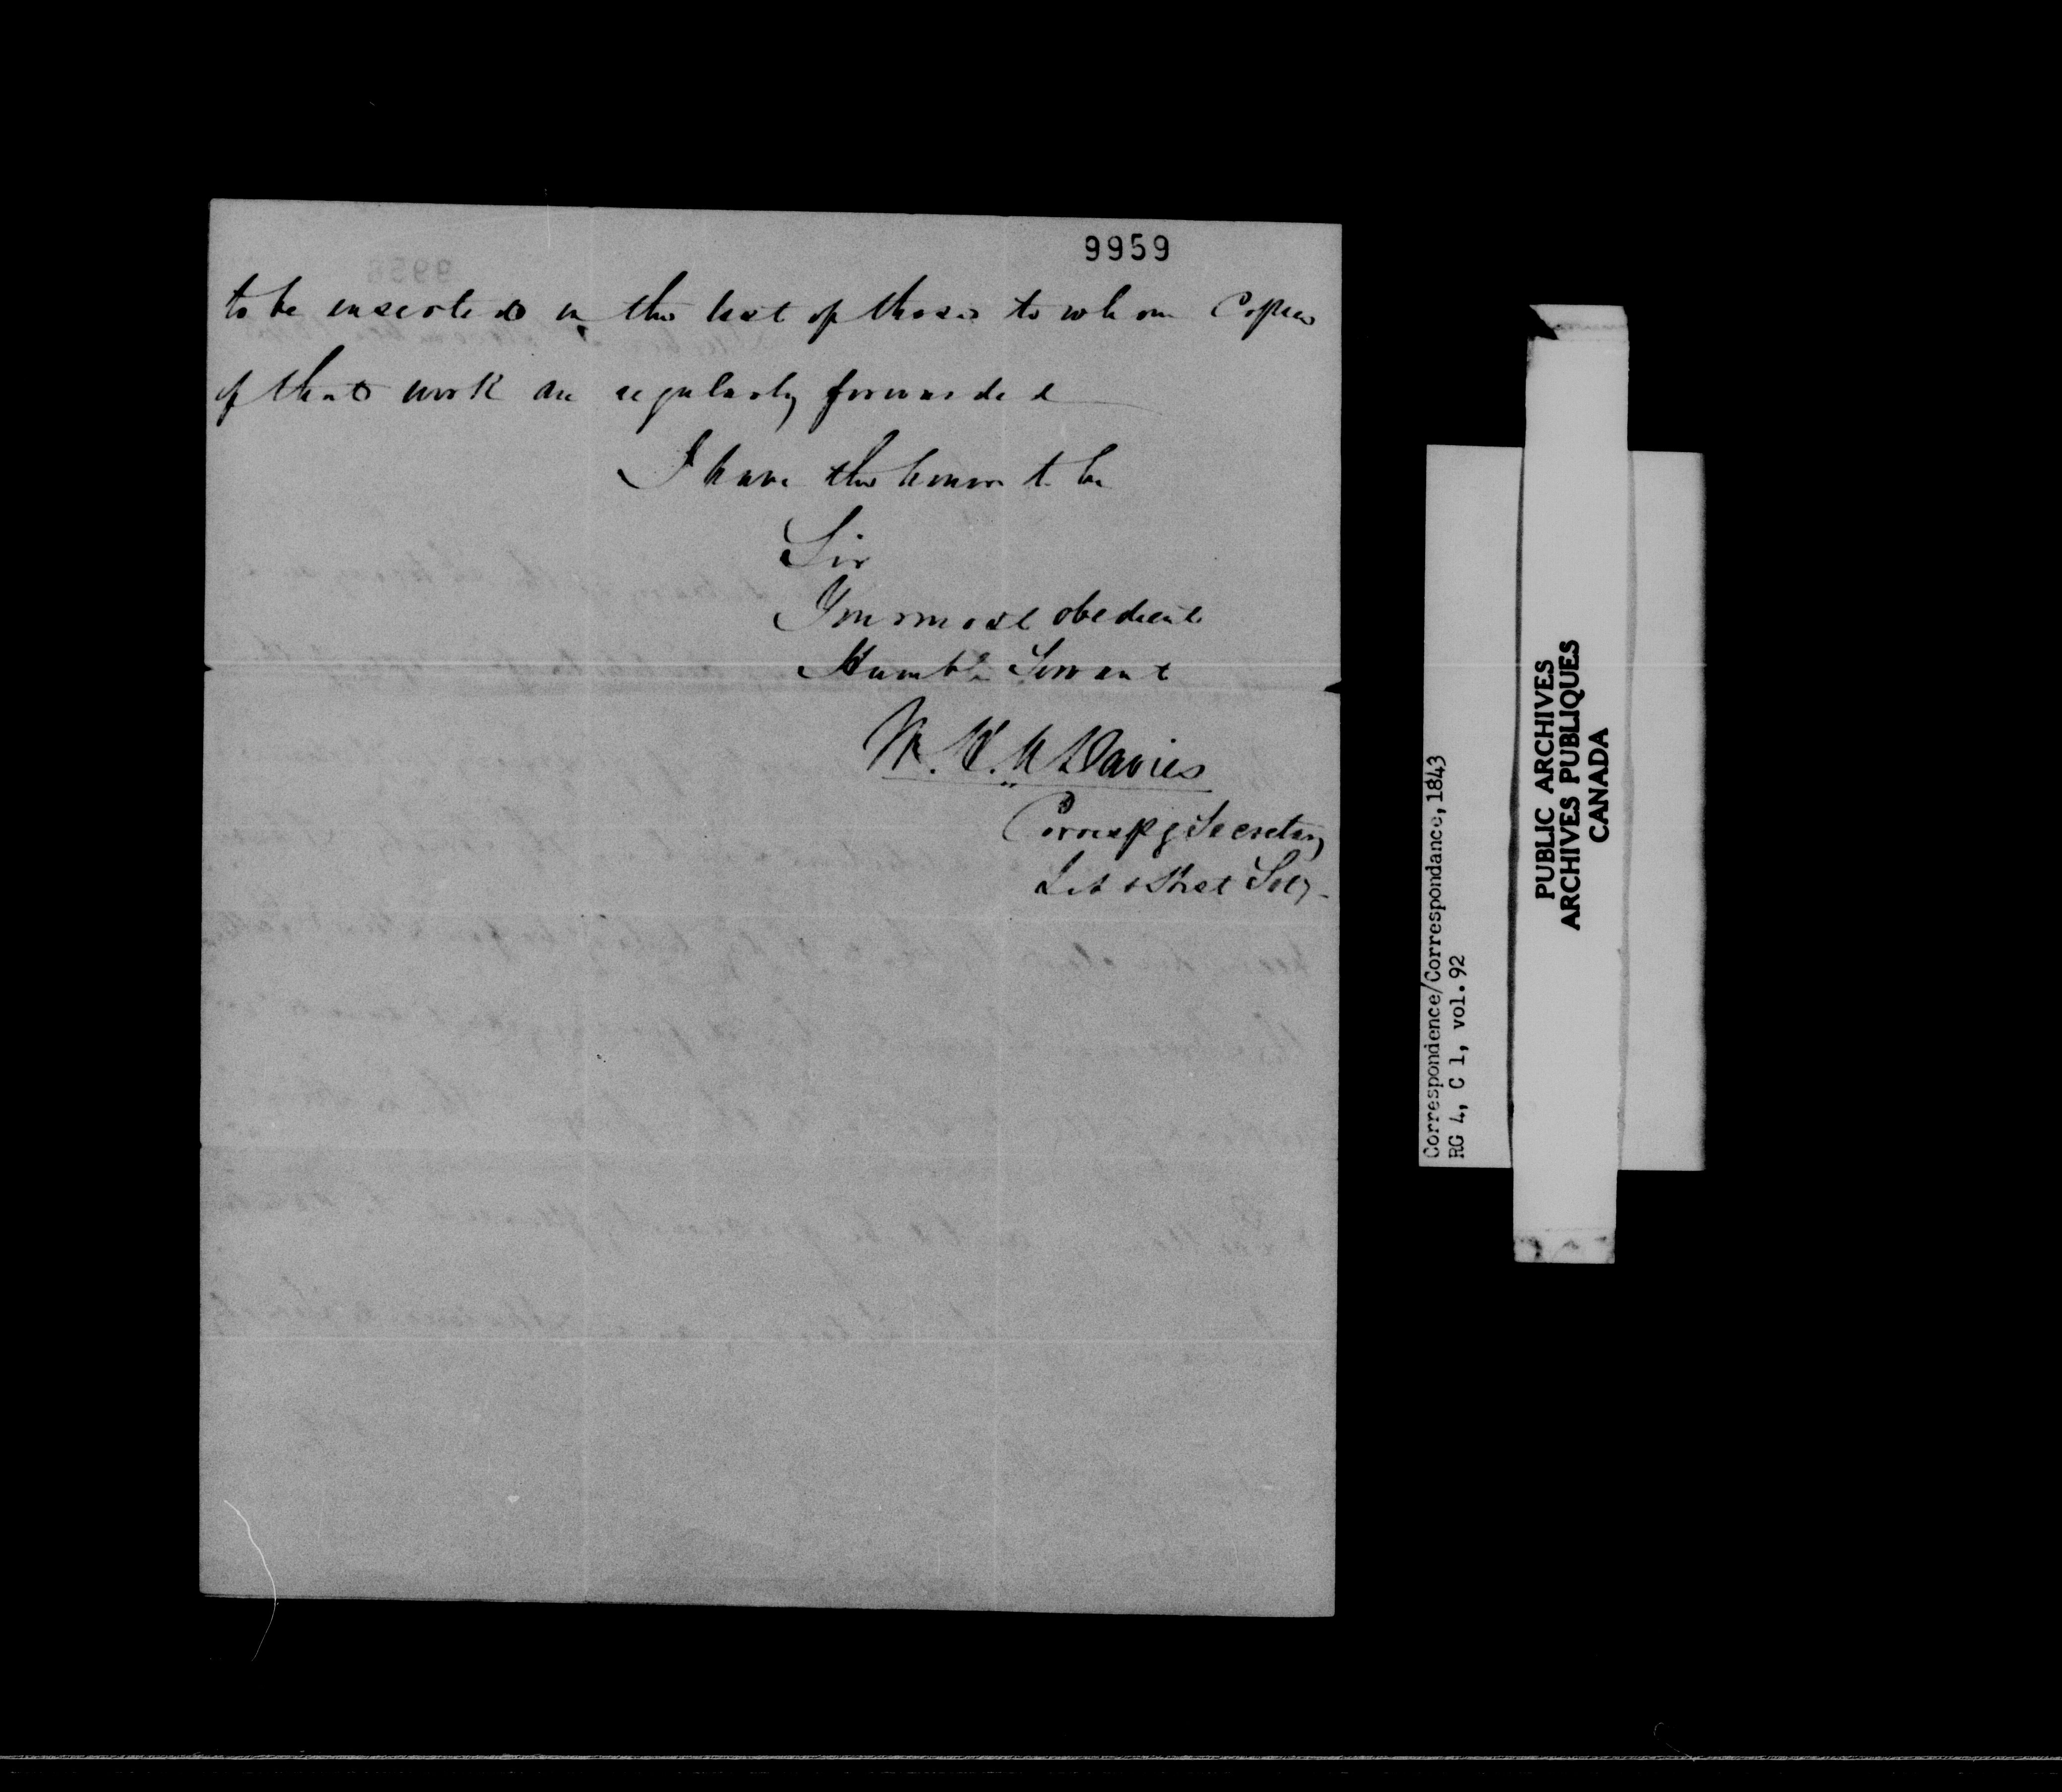 9959
to be inserted in the list of those to whom Copies
of that work are regularly forwarded
I have the honor to be
Sir
Your most obedient
Humble Servant
W. H. A Davies
Correspg Secretary
Lit & Hist Socy-
Correspondence/Correspondance, 1843
RG 4, C 1, vol. 92
PUBLIC ARCHIVES
ARCHIVES PUBLIQUES
CANADA